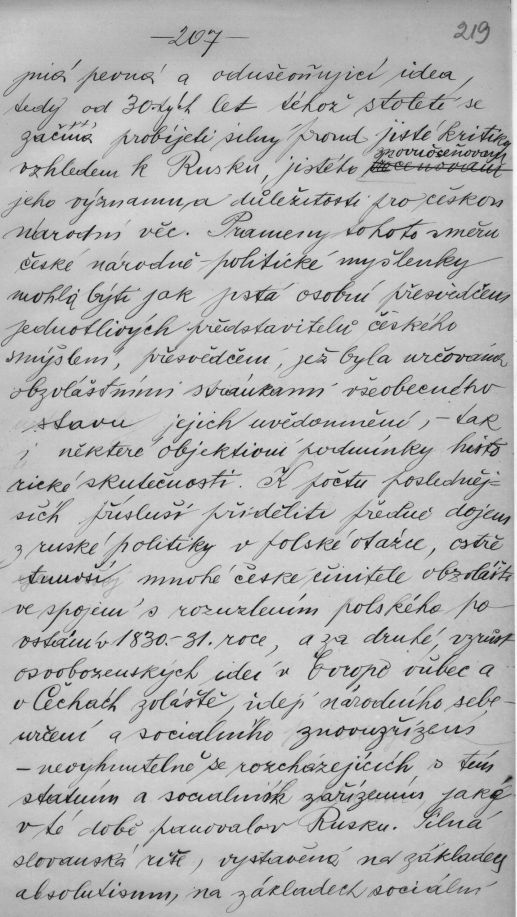 —207—
219
jná pevná a oduševňující idea,
tedy od 30-tých let téhož století se
začíná probíjeti silný proud jisté kritiky
vzhledem k Rusku, jistého
znovuoceňování
jeho významu a důležitosti pro českou
národní věc. Prameny tohoto směru
české národně-politické myšlenky
mohla býti jak pstá osobní přesvědčení
jednotlivých představitelů českého
smýšlení, přesvědčení, jež byla určována
obzvláštními stránkami všeobecného
stavu jejich uvědomnění, – tak
i některé objektivní podmínky histo
rické skutečnosti. K počtu posledněj-
ších přísluší přiděliti předně dojem
z ruské politiky v polské otázce, ostře
mnohé české činitele obzvláště
ve spojení s rozuzlením polského po
vstání v 1830.-31. roce, a za druhé, vzrůst
osvobozenských idei v Evropě vůbec a
v Čechách zvláště, idejí národního sebe-
určení a sociálního znovuzřízení
– nevyhnutelně se rozcházejících s tím
statním a sociálním zařízením, jaké
v té době panovalo v Rusku. Silná
slovanská říše, vystavěná na základech
absolutismu, na základech sociální